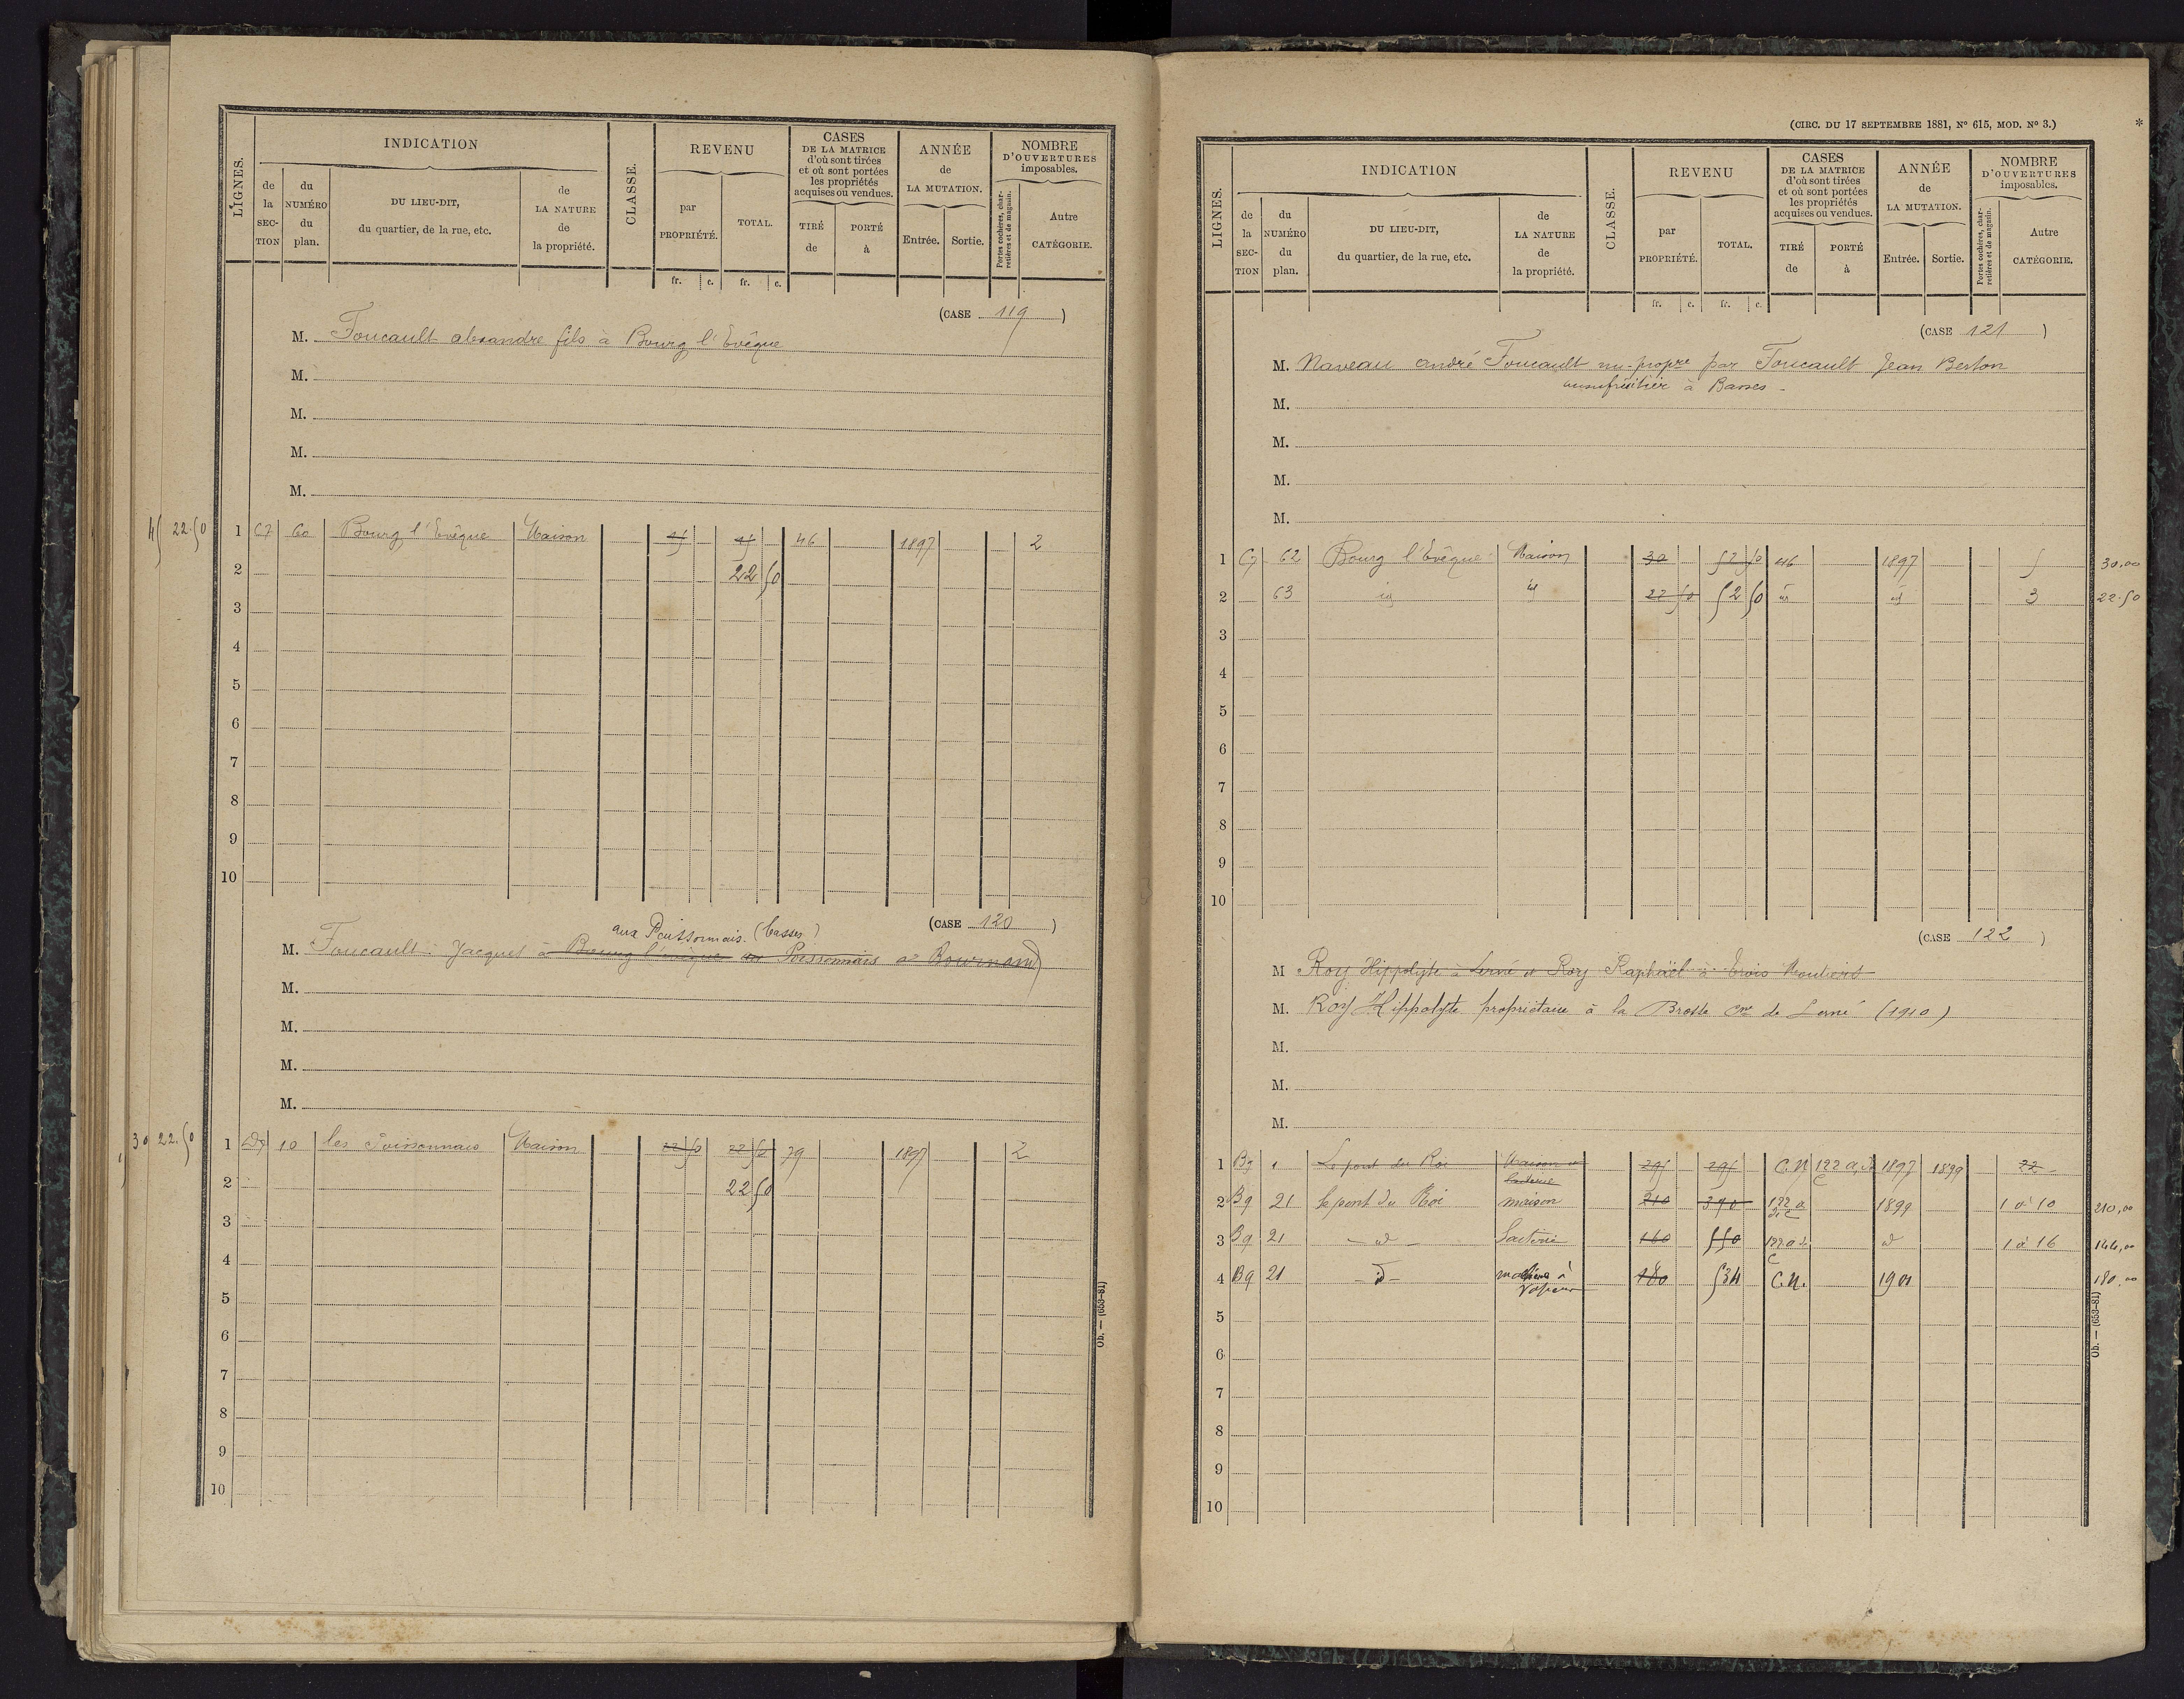 LIGNES.
INDICATION
CLASSE.
REVENU
CASES
DE LA MATRICE
d'où sont tirées
et où sont portées
les propriétés
acquises ou vendues.
ANNÉE
de
LA MUTATION.
NOMBRE
D'OUVERTURES
imposables.
de la SECTION
du NUMÉRO du plan.
DU LIEU-DIT,
du quartier, de la rue, etc.
de LA NATURE de la propriété.
par PROPRIÉTÉ.
TOTAL.
TIRÉ de
PORTÉ à
Entrée.
Sortie.
Portes cochères, charretières et de magasin.
Autre CATÉGORIE.
fr. c. fr. c.
(CASE 119)
M. Foucault alexandre fils à Bourg l'Evêque
M.
M.
M.
M.
45 22.50
1 C7 60 Bourg l'Evêque Maison 45 45 46 1897 2
2 22 50
3
4
5
6
7
8
9
10
(CASE 120)
aux Poissonnais (basses)
M. Foucault Jacques à Bourg l'évêque Poissonnais Bournand
M.
M.
M.
M.
30 22.50
1 10 les Poissonnais Maison 22 50 22 50 79 1897 2
2 22 50
3
4
5
6
7
8
9
10
Ob. — (653-81)
(CIRC. DU 17 SEPTEMBRE 1881, No 615, MOD. No 3.)
*
LIGNES.
INDICATION
CLASSE.
REVENU
CASES
DE LA MATRICE
d'où sont tirées
et où sont portées
les propriétés
acquises ou vendues.
ANNÉE
de
LA MUTATION.
NOMBRE
D'OUVERTURES
imposables.
de la SECTION
du NUMÉRO du plan.
DU LIEU-DIT,
du quartier, de la rue, etc.
de LA NATURE de la propriété.
par PROPRIÉTÉ.
TOTAL.
TIRÉ de
PORTÉ à
Entrée.
Sortie.
Portes cochères, charretières et de magasin.
Autre CATÉGORIE.
fr. c. fr. c.
(CASE 121)
M. Naveau andré Foucault nu-propre par Foucault Jean Berton
usufruitier à Basses
M.
M.
M.
M.
1 C7 62 Bourg l'Evêque Maison 30 52 50 46 1897 5 30.00
2 63 id id 22 50 52 50 id id 3 22.50
3
4
5
6
7
8
9
10
(CASE 122)
M Roy Hippolyte à Lerné et Roy Raphaël à Trois Moutiers
M. Roy Hippolyte propriétaire à la Brosse cne de Lerné (1910)
M.
M.
M.
1 B9 1 Le pont du Roi Maison et laiterie 295 295 C.N 122 1897 1899 22
2 B9 21 le pont du Roi maison 210 390 122 1899 1 à 10 210,00
3 B9 21 id Laiterie 160 550 122 id 1 à 16 144,00
4 B9 21 id machine à Vapeur 180 534 C.N. 1901 180,00
5
6
7
8
9
10
Ob. — (653-81)